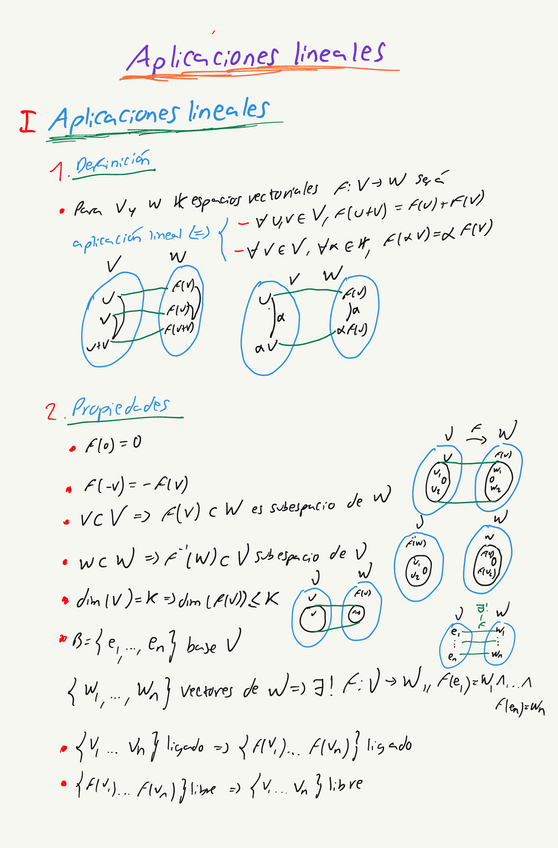 Aplicaciones lineales
I Aplicaciones lineales
1. Definición
• Para V y W 𝕂 espacios vectoriales F: V → W será
aplicación lineal (=) { - ∀ u,v ∈ V, F(u+v) = F(u) + F(v)
- ∀ v ∈ V, ∀ α ∈ 𝕂, F(αv) = α F(v)
V W
u F(u)
v F(v)
u+v F(u+v)
V W
u F(u)
α α
αv αF(u)
2. Propiedades
• F(0) = 0
• F(-v) = -F(v)
• V ⊂ V => F(V) ⊂ W es subespacio de W
• W ⊂ W => F⁻¹(W) ⊂ V subespacio de V
• dim(V) = K => dim(F(V)) ≤ K
• B = {e₁, ..., eₙ} base V
{w₁, ..., wₙ} vectores de W => ∃! F: V → W,, F(e₁) = w₁ ∧ ... ∧
F(eₙ) = wₙ
• {v₁ ... vₙ} ligado => {F(v₁) ... F(vₙ)} ligado
• {F(v₁) ... F(vₙ)} libre => {v₁ ... vₙ} libre
V F → W
V F(V)
v₁ 0 v₂
w₁ 0 w₂
V W
V W
V F(V)
V ∃! W
F
e₁ w₁
⋮ ⋮
eₙ wₙ